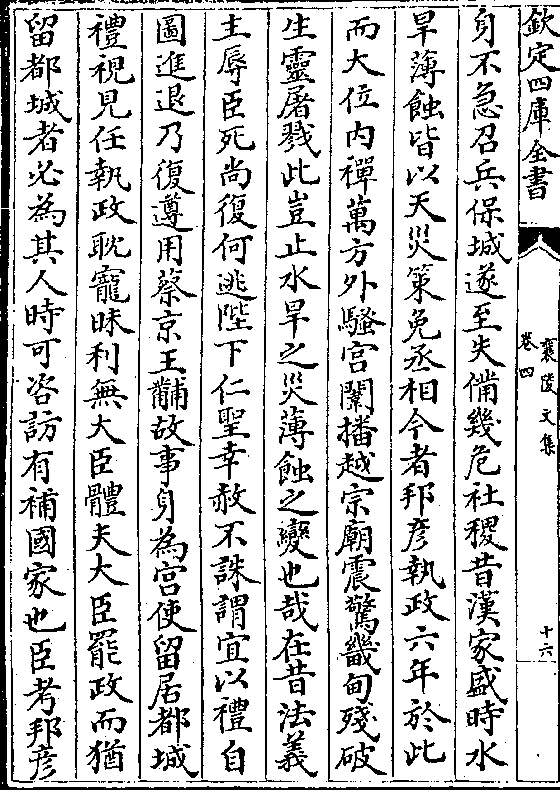 欽定四庫全書
襄陵文集
卷四
十六
身不急召兵保城遂至失備幾危社稷昔漢家盛時水
旱薄蝕皆以天災策免丞相今者邦彦執政六年於此
而大位内禪萬方外騷宫闈播越宗廟震驚畿甸殘破
生靈屠戮此豈止水旱之災薄蝕之變也哉在昔法義
主辱臣死尚復何逃陛下仁聖幸赦不誅謂宜以禮自
圖進退乃復遵用蔡京王黼故事身為宫使留居都城
禮視見任執政耽寵昧利無大臣體夫大臣罷政而猶
留都城者必為其人時可咨訪有補國家也臣考邦彦